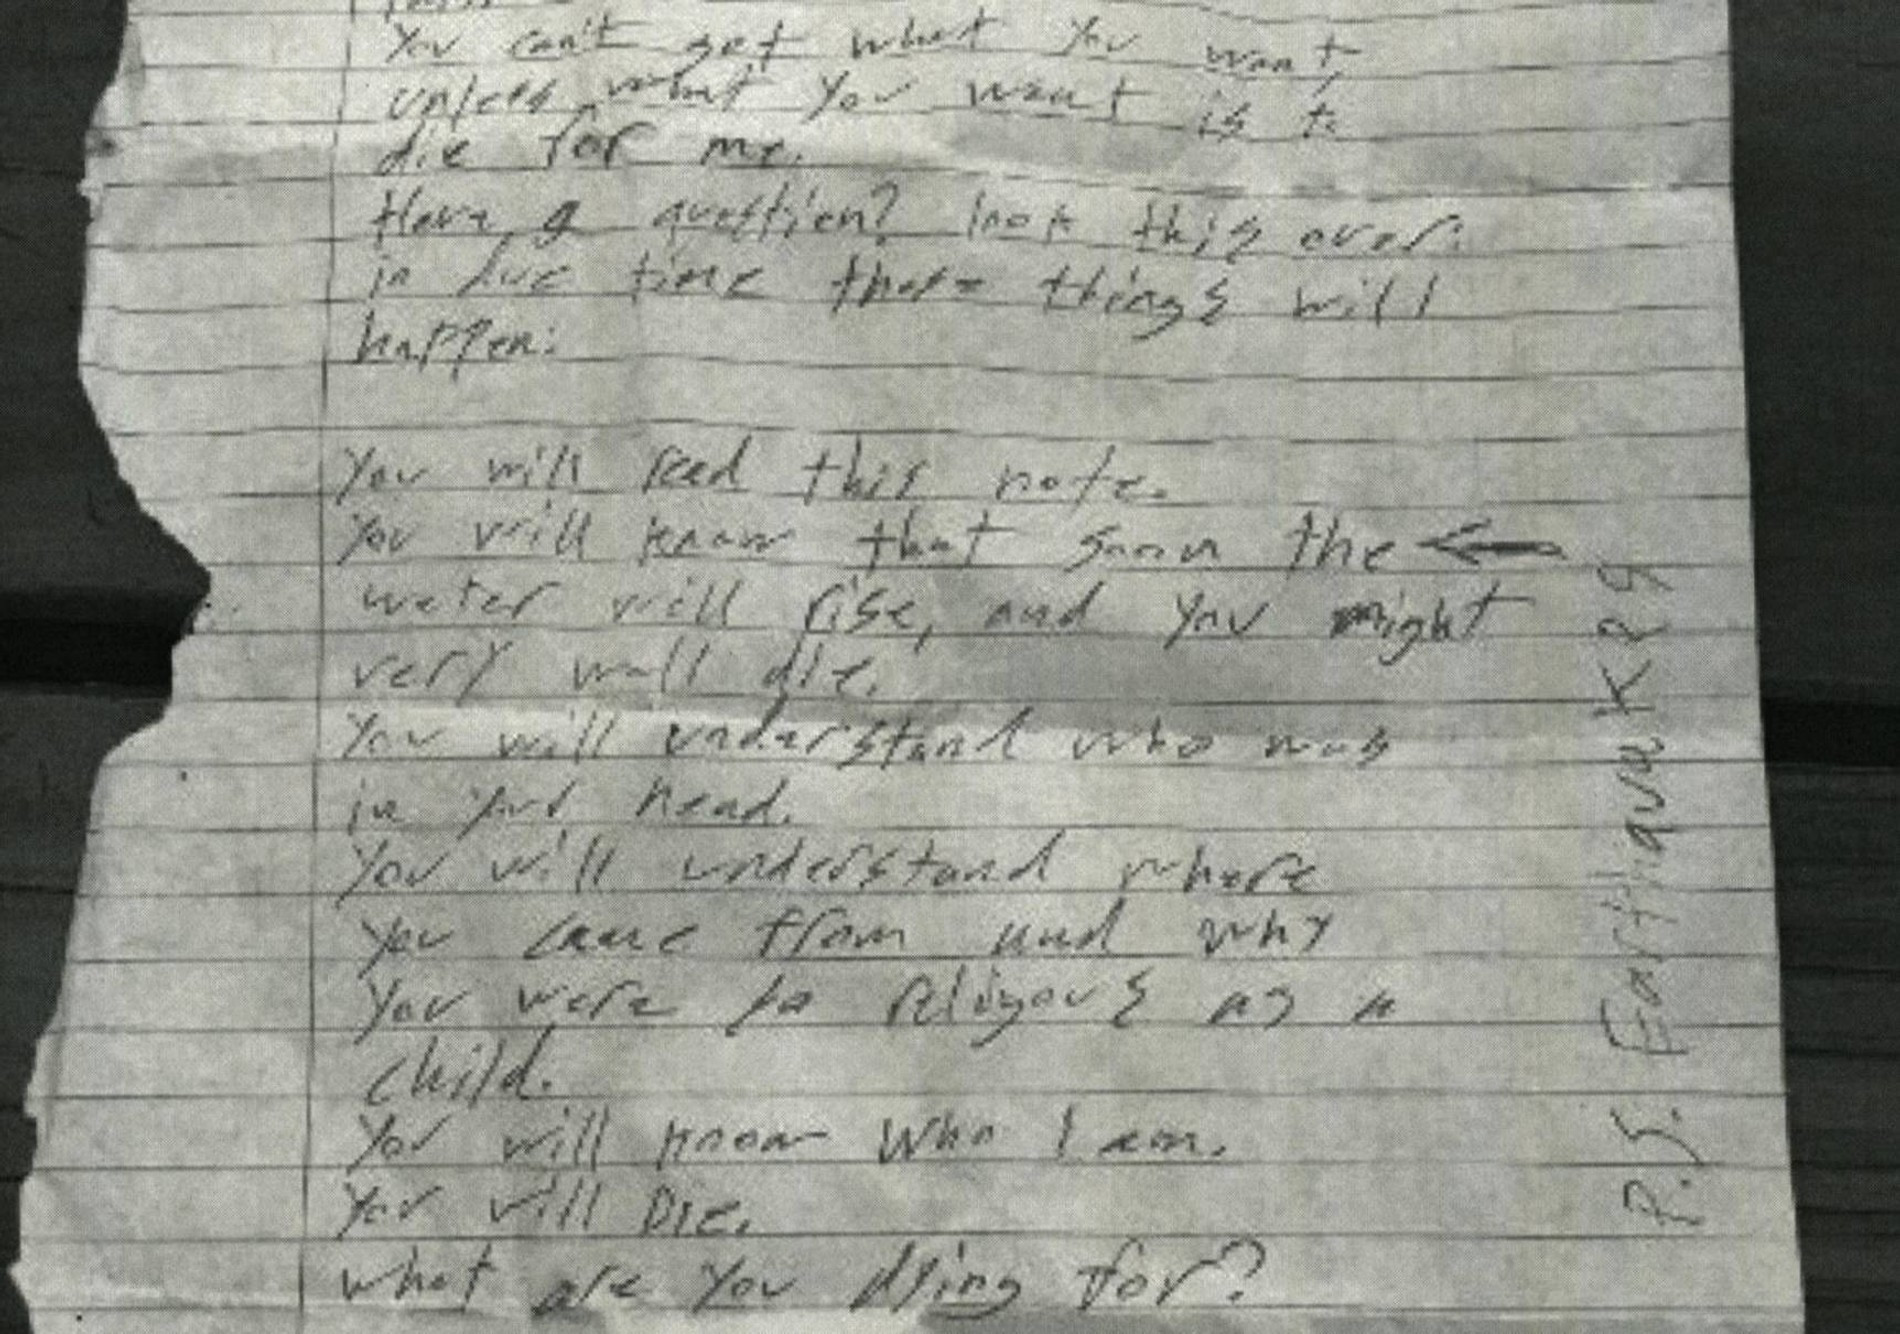 You can't get what you want,
unless what you want is to
die for me.
Have a question? look this over.
in due time these things will
happen:
You will read this note.
You will know that soon the ←
water will rise, and you might
very well die.
You will understand who was
in your head.
You will understand where
you came from and why
you were so religous as a
child.
You will know who I am.
You will DIE.
what are you dying for?
P.S. EarthquaKR9